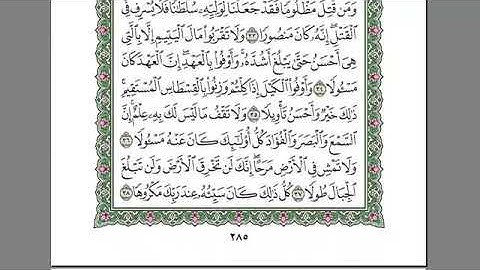 وَمَن قُتِلَ مَظْلُومًا فَقَدْ جَعَلْنَا لِوَلِيِّهِۦ سُلْطَٰنًا فَلَا يُسْرِف فِّى
ٱلْقَتْلِ إِنَّهُۥ كَانَ مَنصُورًا ٣٣ وَلَا تَقْرَبُوا۟ مَالَ ٱلْيَتِيمِ إِلَّا بِٱلَّتِى
هِىَ أَحْسَنُ حَتَّىٰ يَبْلُغَ أَشُدَّهُۥ وَأَوْفُوا۟ بِٱلْعَهْدِ إِنَّ ٱلْعَهْدَ كَانَ
مَسْـُٔولًا ٣٤ وَأَوْفُوا۟ ٱلْكَيْلَ إِذَا كِلْتُمْ وَزِنُوا۟ بِٱلْقِسْطَاسِ ٱلْمُسْتَقِيمِ
ذَٰلِكَ خَيْرٌ وَأَحْسَنُ تَأْوِيلًا ٣٥ وَلَا تَقْفُ مَا لَيْسَ لَكَ بِهِۦ عِلْمٌ إِنَّ
ٱلسَّمْعَ وَٱلْبَصَرَ وَٱلْفُؤَادَ كُلُّ أُو۟لَٰٓئِكَ كَانَ عَنْهُ مَسْـُٔولًا ٣٦
وَلَا تَمْشِ فِى ٱلْأَرْضِ مَرَحًا إِنَّكَ لَن تَخْرِقَ ٱلْأَرْضَ وَلَن تَبْلُغَ
ٱلْجِبَالَ طُولًا ٣٧ كُلُّ ذَٰلِكَ كَانَ سَيِّئُهُۥ عِندَ رَبِّكَ مَكْرُوهًا ٣٨
٢٨٥